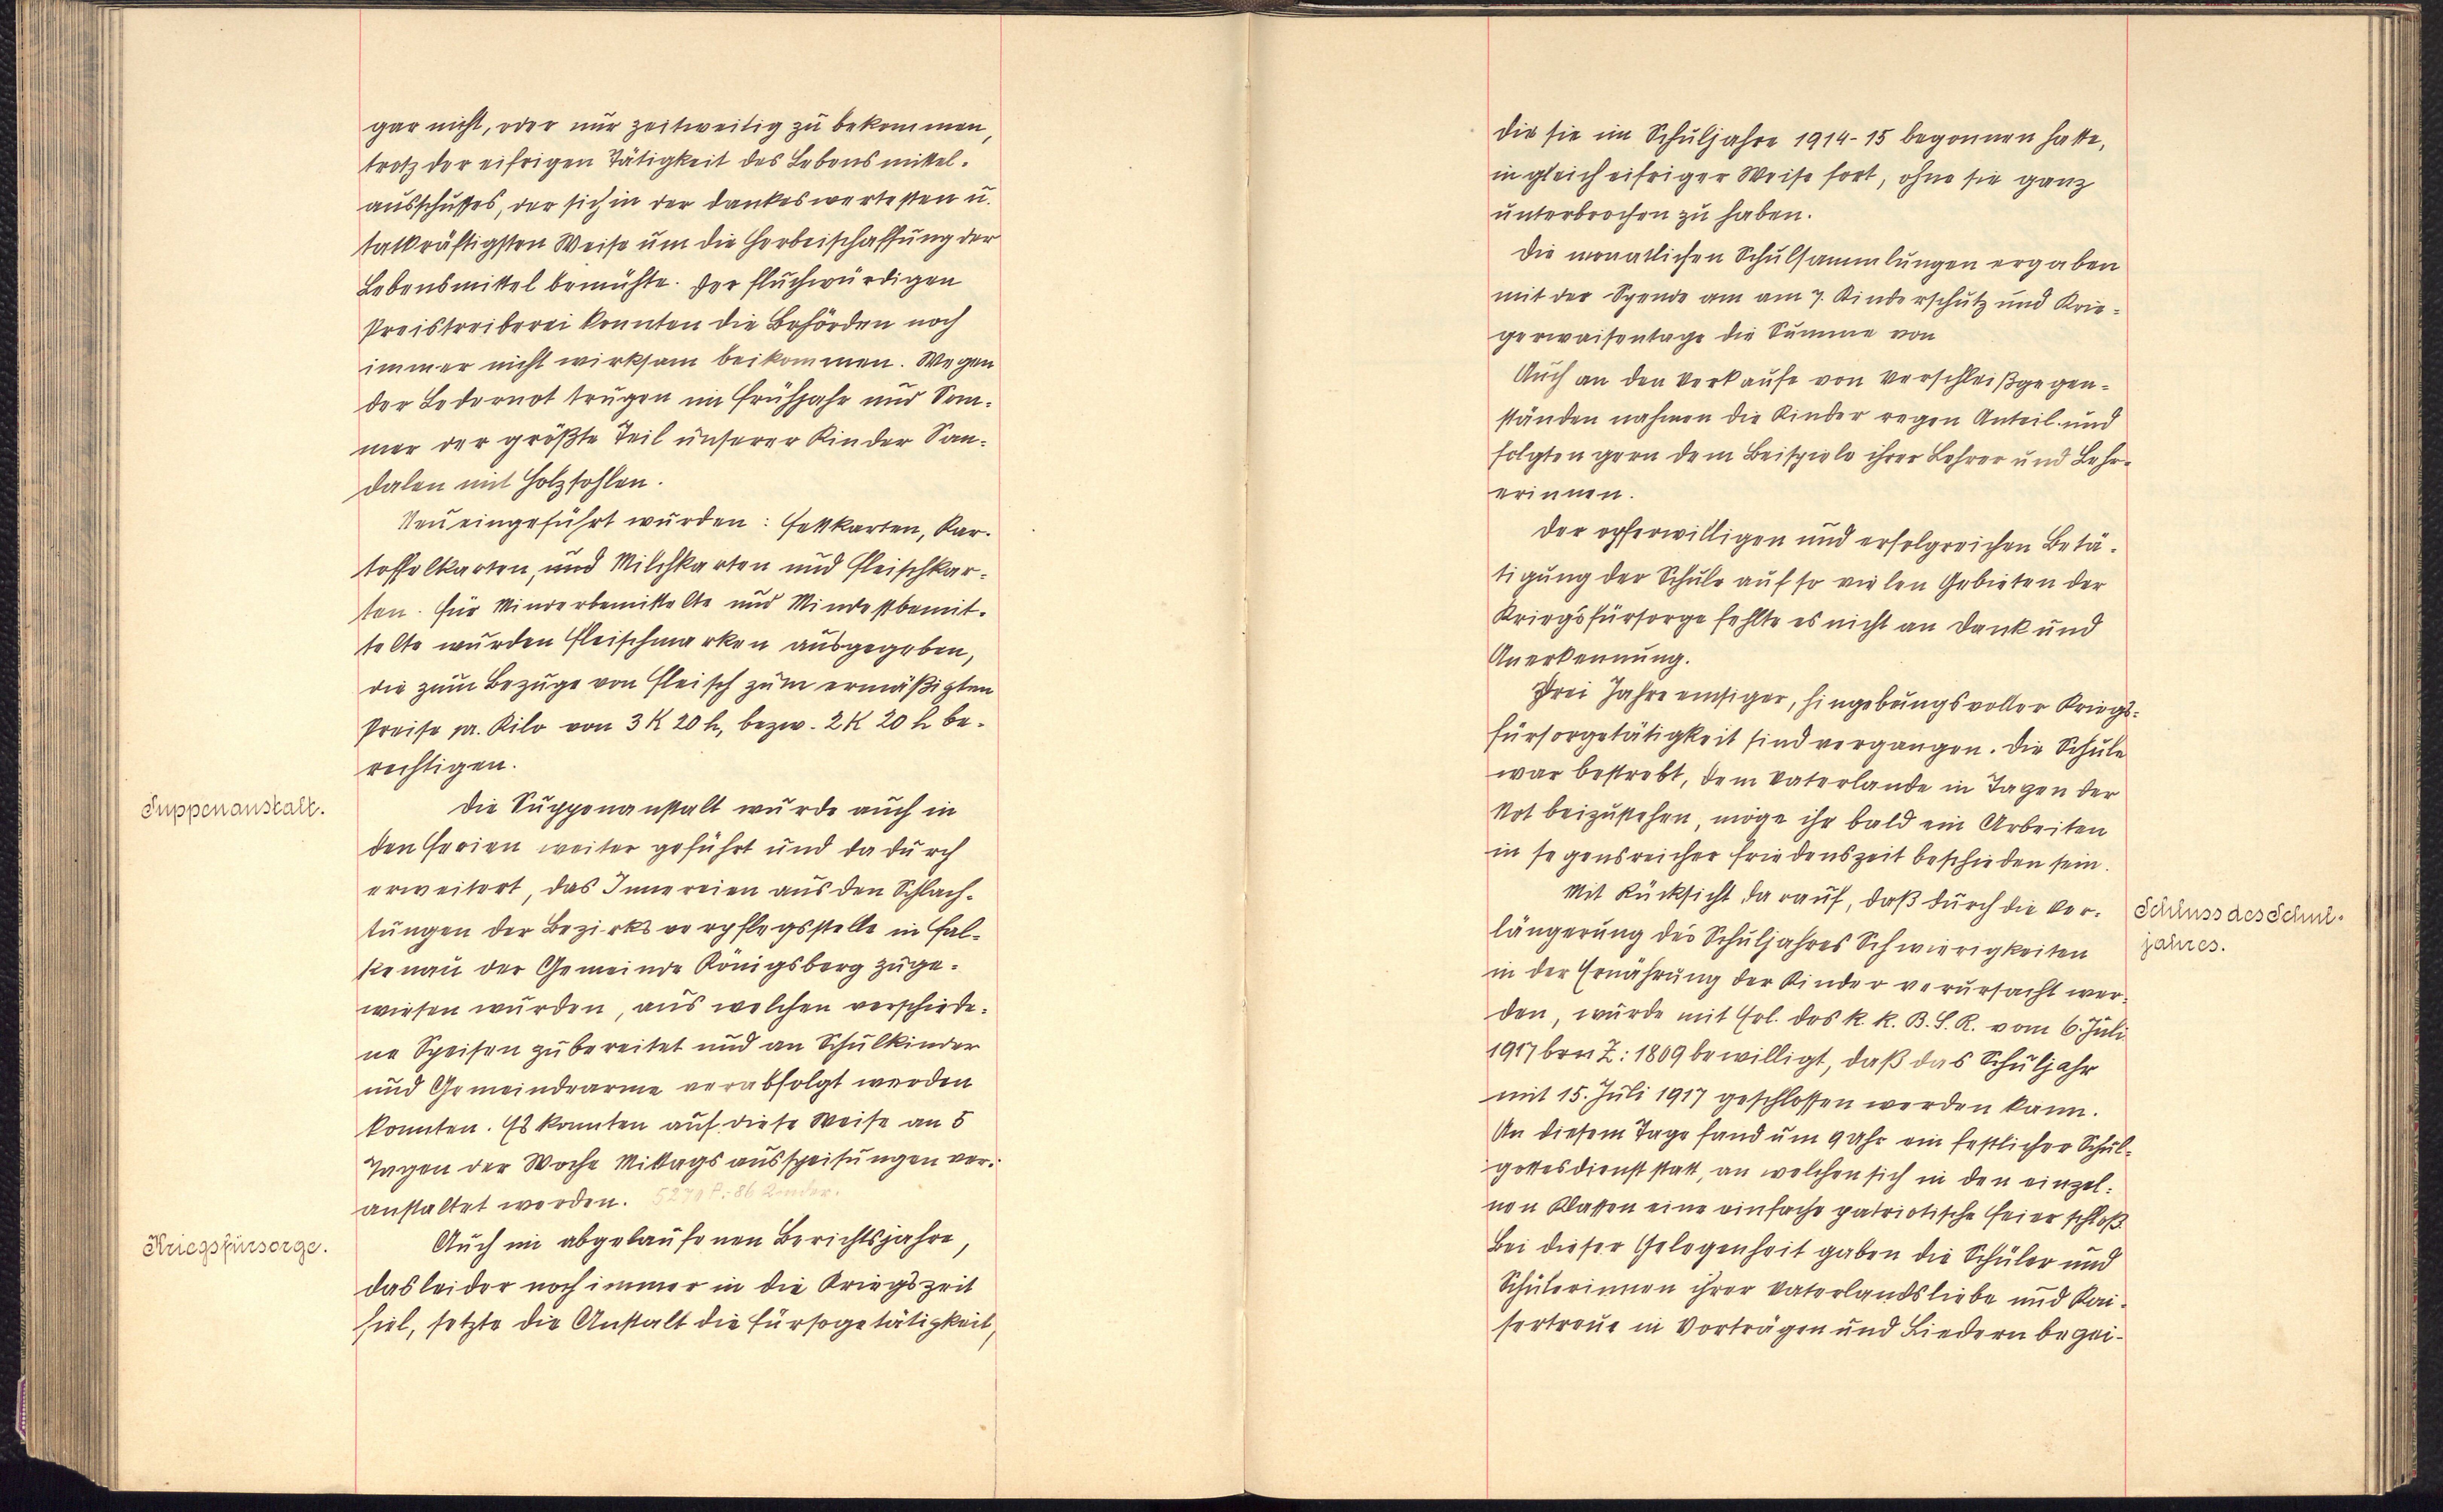 gar nicht, oder nur zeitweilig zu bekommen,
trotz der eifrigen Tätigkeit des Lebensmittel-
ausschusses, der sich in der dankeswertesten u.
tatkräftigsten Weise um die Herbeischaffung der
Lebensmittel bemühte. Der fluchwürdigen
Preistreiberei konnten die Behörden noch
immer nicht wirksam beikommen. Wegen
der Ledernot trugen im Frühjahr und Som-
mer der größte Teil unserer Kinder San-
dalen mit Holzsohlen.
Neu eingeführt wurden: Fettkarten, Kar-
toffelkarten, und Milchkarten und Fleischkar-
ten. Für Minderbemittelte und Mindestbemit-
telte wurden Fleischmarken ausgegeben,
die zum Bezuge von Fleisch zum ermäßigten
Preise pr. Kilo von 3 K 20 h, bezw. 2 K 20 h be-
rechtigen.
Suppenanstalt.
Die Suppenanstalt wurde auch in
den Ferien weiter geführt und dadurch
erweitert, das Innereien aus den Schlach-
tungen der Bezirksverpflegsstelle in Fal-
kenau der Gemeinde Königsberg zuge-
wiesen wurden, aus welchen verschiede-
ne Speisen zubereitet und an Schulkinder
und Gemeindearme verabfolgt werden
konnten. Es konnten auf diese Weise an 5
Tagen der Woche Mittagsausspeisungen ver-
anstaltet werden. 5279 P. 86 Kinder.
Kriegsfürsorge.
Auch im abgelaufenen Berichtsjahre,
das leider noch immer in die Kriegszeit
fiel, setzte die Anstalt die Fürsogetätigkeit,
die sie im Schuljahre 1914-15 begonnen hatte,
in gleich eifriger Weise fort, ohne sie ganz
unterbrochen zu haben.
Die monatlichen Schulsammlungen ergaben
mit der Spende am am 7. Kinderschutz und Krie-
gerwaisentage die Summe von
Auch an den Verkaufe von Verschleißgegen-
ständen nahmen die Kinder regen Anteil und
folgten gern dem Beispiele ihrer Lehrer und Lehr-
erinnen.
Der opferwilligen und erfolgreichen Betä-
tigung der Schule auf so vielen Gebieten der
Kriegsfürsorge fehlte es nicht an Dank und
Anerkennung.
Drei Jahre emsiger, hingebungsvoller Kriegs-
fürsorgetätigkeit sind vergangen. Die Schule
war bestrebt, dem Vaterlande in Tagen der
Not beizustehen, möge ihr bald ein Arbeiten
in segensreicher Friedenszeit beschieden sein.
Schluss des Schul-
jahres.
Mit Rücksicht darauf, daß durch die Ver-
längerung des Schuljahres Schwierigkeiten
in der Ernährung der Kinder verursacht wer-
den, wurde mit Erl. des k. k. B. S. R. vom 6. Juli
1917 Z: 1809 bewilligt, daß das Schuljahr
mit 15. Juli 1917 geschlossen werden kann.
An diesem Tage fand um 9 Uhr ein festlicher Schul-
gottesdienst statt, an welchen sich in den einzel-
nen Klassen eine einfache patriotische Feier schloß
Bei dieser Gelegenheit gaben die Schüler und
Schülerinnen ihrer Vaterlandsliebe und Kai-
sertreue in Vorträgen und Liedern begei-